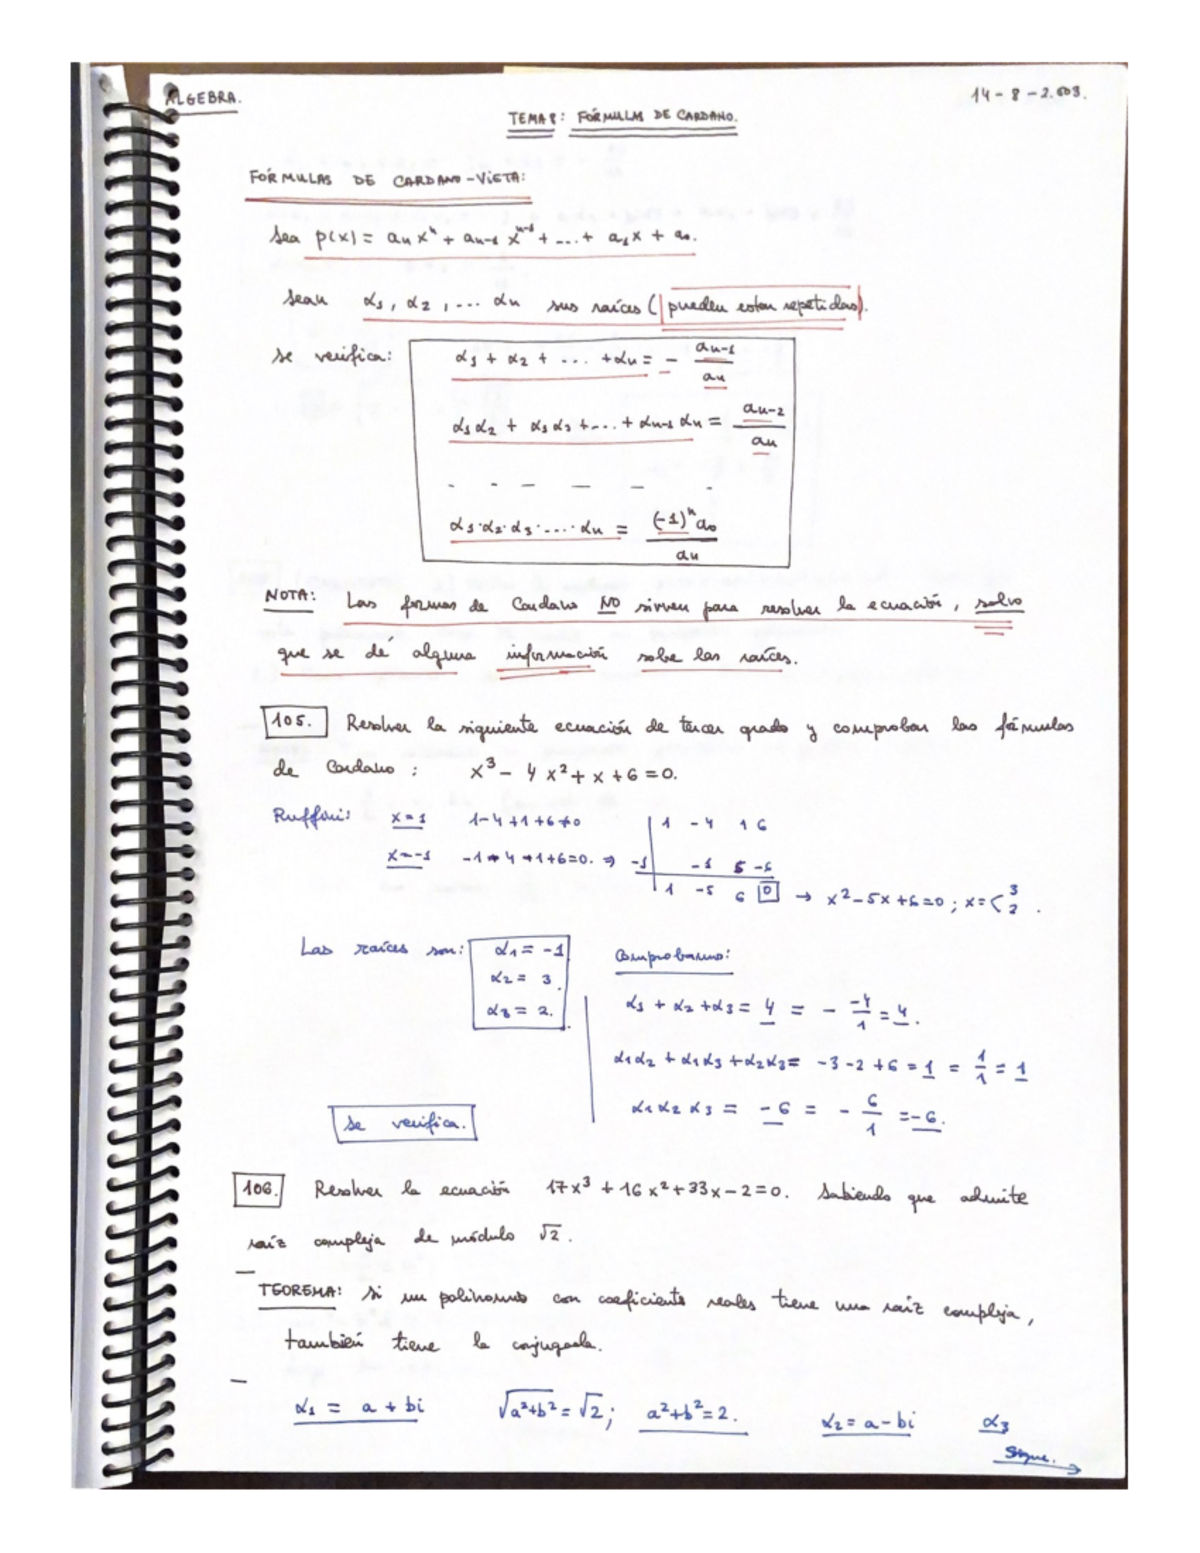 ALGEBRA.
14 - 8 - 2.003.
TEMA 8: FÓRMULAS DE CARDANO.
FÓRMULAS DE CARDANO-VIETA:
Sea p(x) = aₙxⁿ + aₙ₋₁xⁿ⁻¹ + ... + a₁x + a₀.
Sean α₁, α₂, ... αₙ sus raíces (pueden estar repetidas).
Se verifica: α₁ + α₂ + ... + αₙ = - aₙ₋₁/aₙ
α₁α₂ + α₁α₃ + ... + αₙ₋₁αₙ = aₙ₋₂/aₙ
- - - - - -
α₁·α₂·α₃·....·αₙ = (-1)ⁿa₀/aₙ
NOTA: Las formas de Cardano NO sirven para resolver la ecuación, salvo
que se dé alguna información sobre las raíces.
105. Resolver la siguiente ecuación de tercer grado y comprobar las fórmulas
de Cardano: x³ - 4x² + x + 6 = 0.
Ruffini: x = 1 1-4+1+6≠0 1 -4 1 6
x = -1 -1-4-1+6=0. ⇒ -1 -1 5 -6
1 -5 6 0 → x²-5x+6=0; x=< 3 2.
Las raíces son: α₁ = -1 Comprobamos:
α₂ = 3.
α₃ = 2. α₁ + α₂ + α₃ = 4 = - -4/1 = 4.
α₁α₂ + α₁α₃ + α₂α₃ = -3-2+6 = 1 = 1/1 = 1
Se verifica. α₁α₂α₃ = -6 = - 6/1 = -6.
106. Resolver la ecuación 17x³ + 16x² + 33x - 2 = 0. Sabiendo que admite
raíz compleja de módulo √2.
TEOREMA: Si un polinomio con coeficiente reales tiene una raíz compleja,
también tiene la conjugada.
α₁ = a + bi √a²+b² = √2; a²+b²=2. α₂ = a - bi α₃
Sigue. →